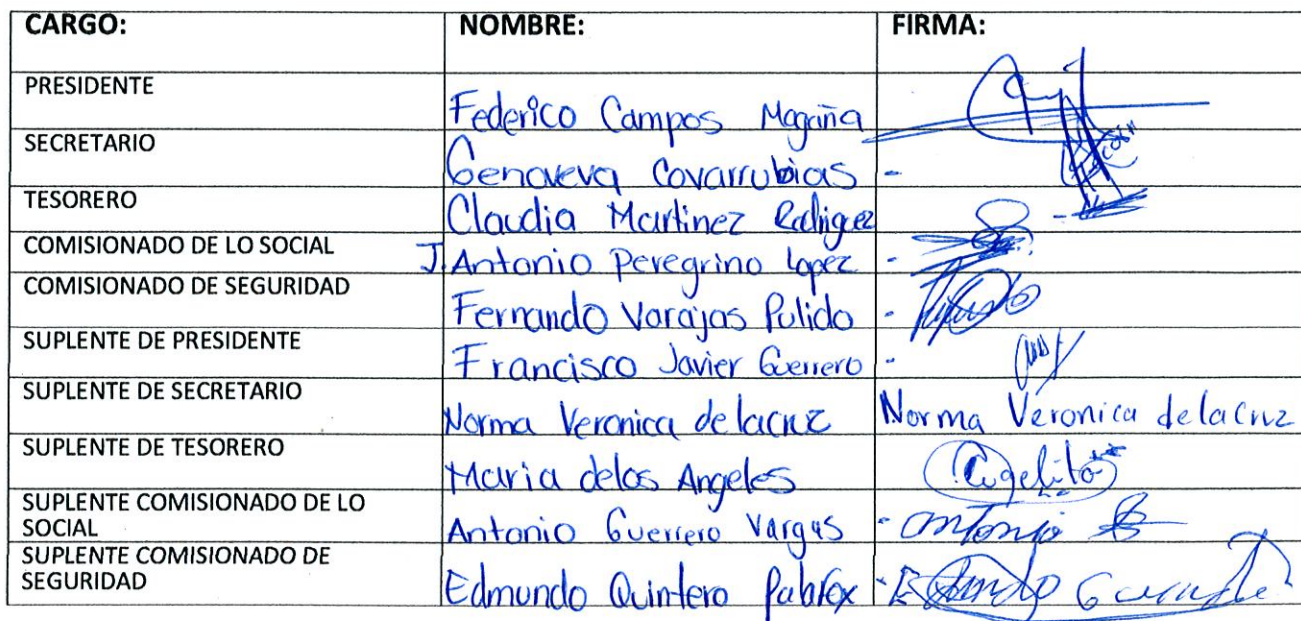 CARGO: NOMBRE: FIRMA:
PRESIDENTE Federico Campos Magaña
SECRETARIO Genoveva Covarrubias -
TESORERO Claudia Martinez Rodriguez -
COMISIONADO DE LO SOCIAL J. Antonio Peregrino Lopez -
COMISIONADO DE SEGURIDAD Fernando Varajas Pulido -
SUPLENTE DE PRESIDENTE Francisco Javier Guerrero -
SUPLENTE DE SECRETARIO Norma Veronica de lacruz Norma Veronica delacruz
SUPLENTE DE TESORERO Maria delos Angeles Angelita
SUPLENTE COMISIONADO DE LO
SOCIAL Antonio Guerrero Vargas - Antonio
SUPLENTE COMISIONADO DE
SEGURIDAD Edmundo Quintero Palafox -